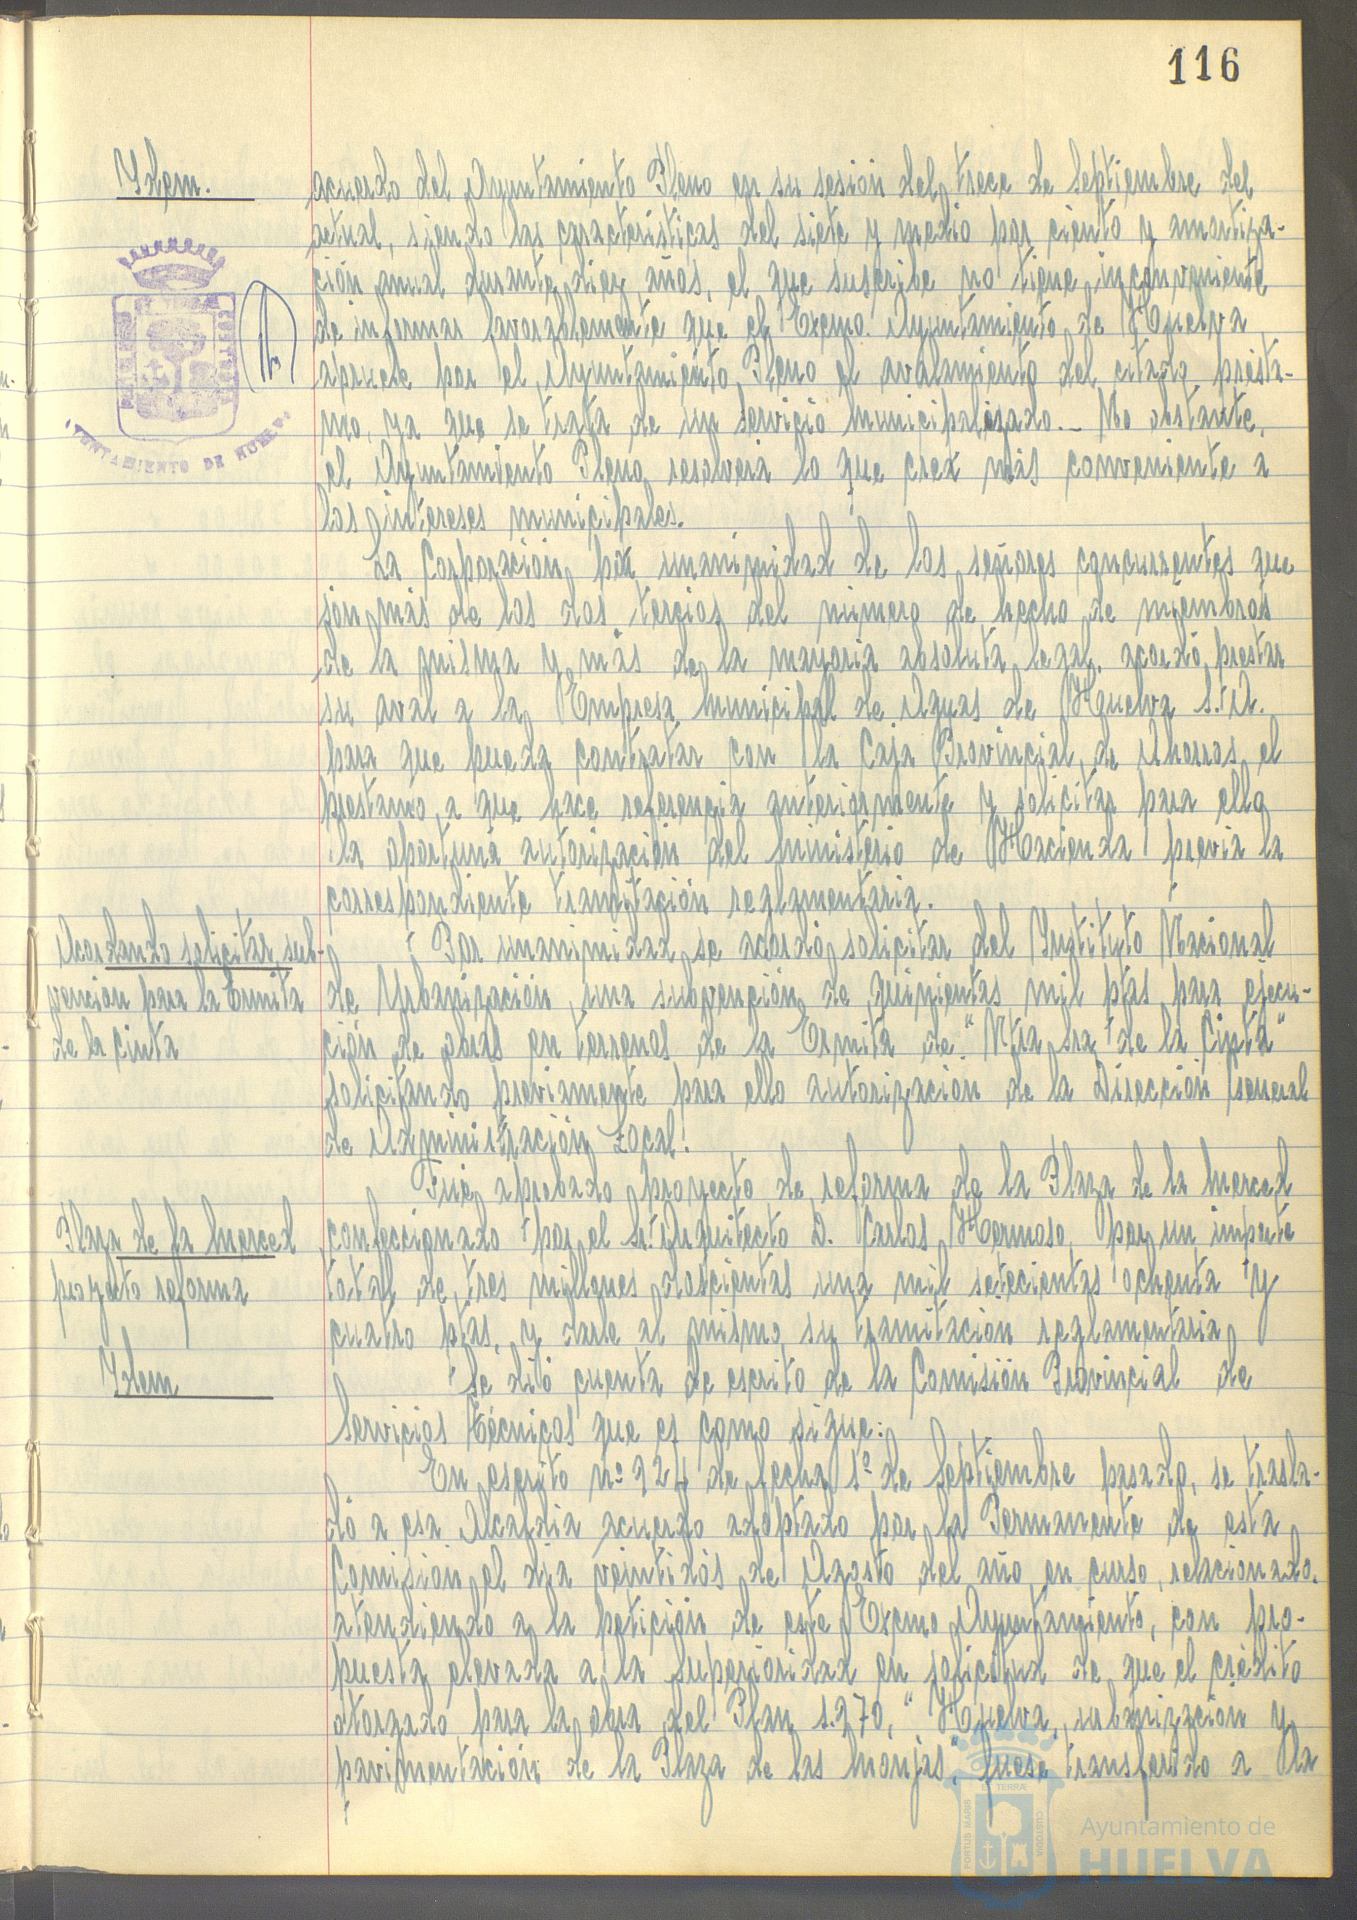 116
Idem.
acuerdo del Ayuntamiento Pleno en su sesión del trece de Septiembre del
actual, siendo las características del siete y medio por ciento y amortiza-
ción anual durante diez años, el que suscribe no tiene inconveniente
de informar favorablemente que el Excmo. Ayuntamiento de Huelva
apruebe por el Ayuntamiento Pleno el avalamiento del citado présta-
mo, ya que se trata de un Servicio Municipalizado.- No obstante,
el Ayuntamiento Pleno resolverá lo que crea más conveniente a
los intereses municipales.
La Corporación por unanimidad de los señores concurrentes que
son más de los dos tercios del número de hecho de miembros
de la misma y más de la mayoría absoluta legal, acordó prestar
su aval a la Empresa Municipal de Aguas de Huelva S.A.
para que pueda contratar con la Caja Provincial de Ahorros el
prestamo a que hace referencia anteriormente y solicitar para ello
la oportuna autorización del Ministerio de Hacienda previa la
correspondiente tramitación reglamentaria.
Acordando solicitar sub-
vención para la Ermita
de la Cinta
Por unanimidad se acordó solicitar del Instituto Nacional
de Urbanización una subvención de quinientas mil ptas para ejecu-
ción de obras en terrenos de la Ermita de "Ntra Sra de la Cinta"
solicitando previamente para ello autorización de la Dirección General
de Administración Local.
Plaza de la Merced
proyecto reforma
Fué aprobado proyecto de reforma de la Plaza de la Merced
confeccionado por el Sr. Arquitecto D. Carlos Hermoso, por un importe
total de tres millones doscientas una mil setecientas ochenta y
cuatro ptas, y darle al mismo su tramitación reglamentaria
Idem
Se dió cuenta de escrito de la Comisión Provincial de
Servicios Técnicos que es como sigue:
En escrito nº 924 de fecha 1º de Septiembre pasado, se trasla-
dó a esa Alcaldia acuerdo adoptado por la Permanente de esta
Comisión el día veintidós de Agosto del año en curso, relacionado,
atendiendo a la petición de este Excmo Ayuntamiento, con pro-
puesta elevada a la Superioridad en solicitud de que el crédito
otorgado para la obra del Plan 1.970, "Huelva, urbanización y
pavimentación de la Plaza de las Monjas", fuese transferido a la
AYUNTAMIENTO DE HUELVA
PORTUS MARIS
ET TERRAE
CUSTODIA
Ayuntamiento de
HUELVA